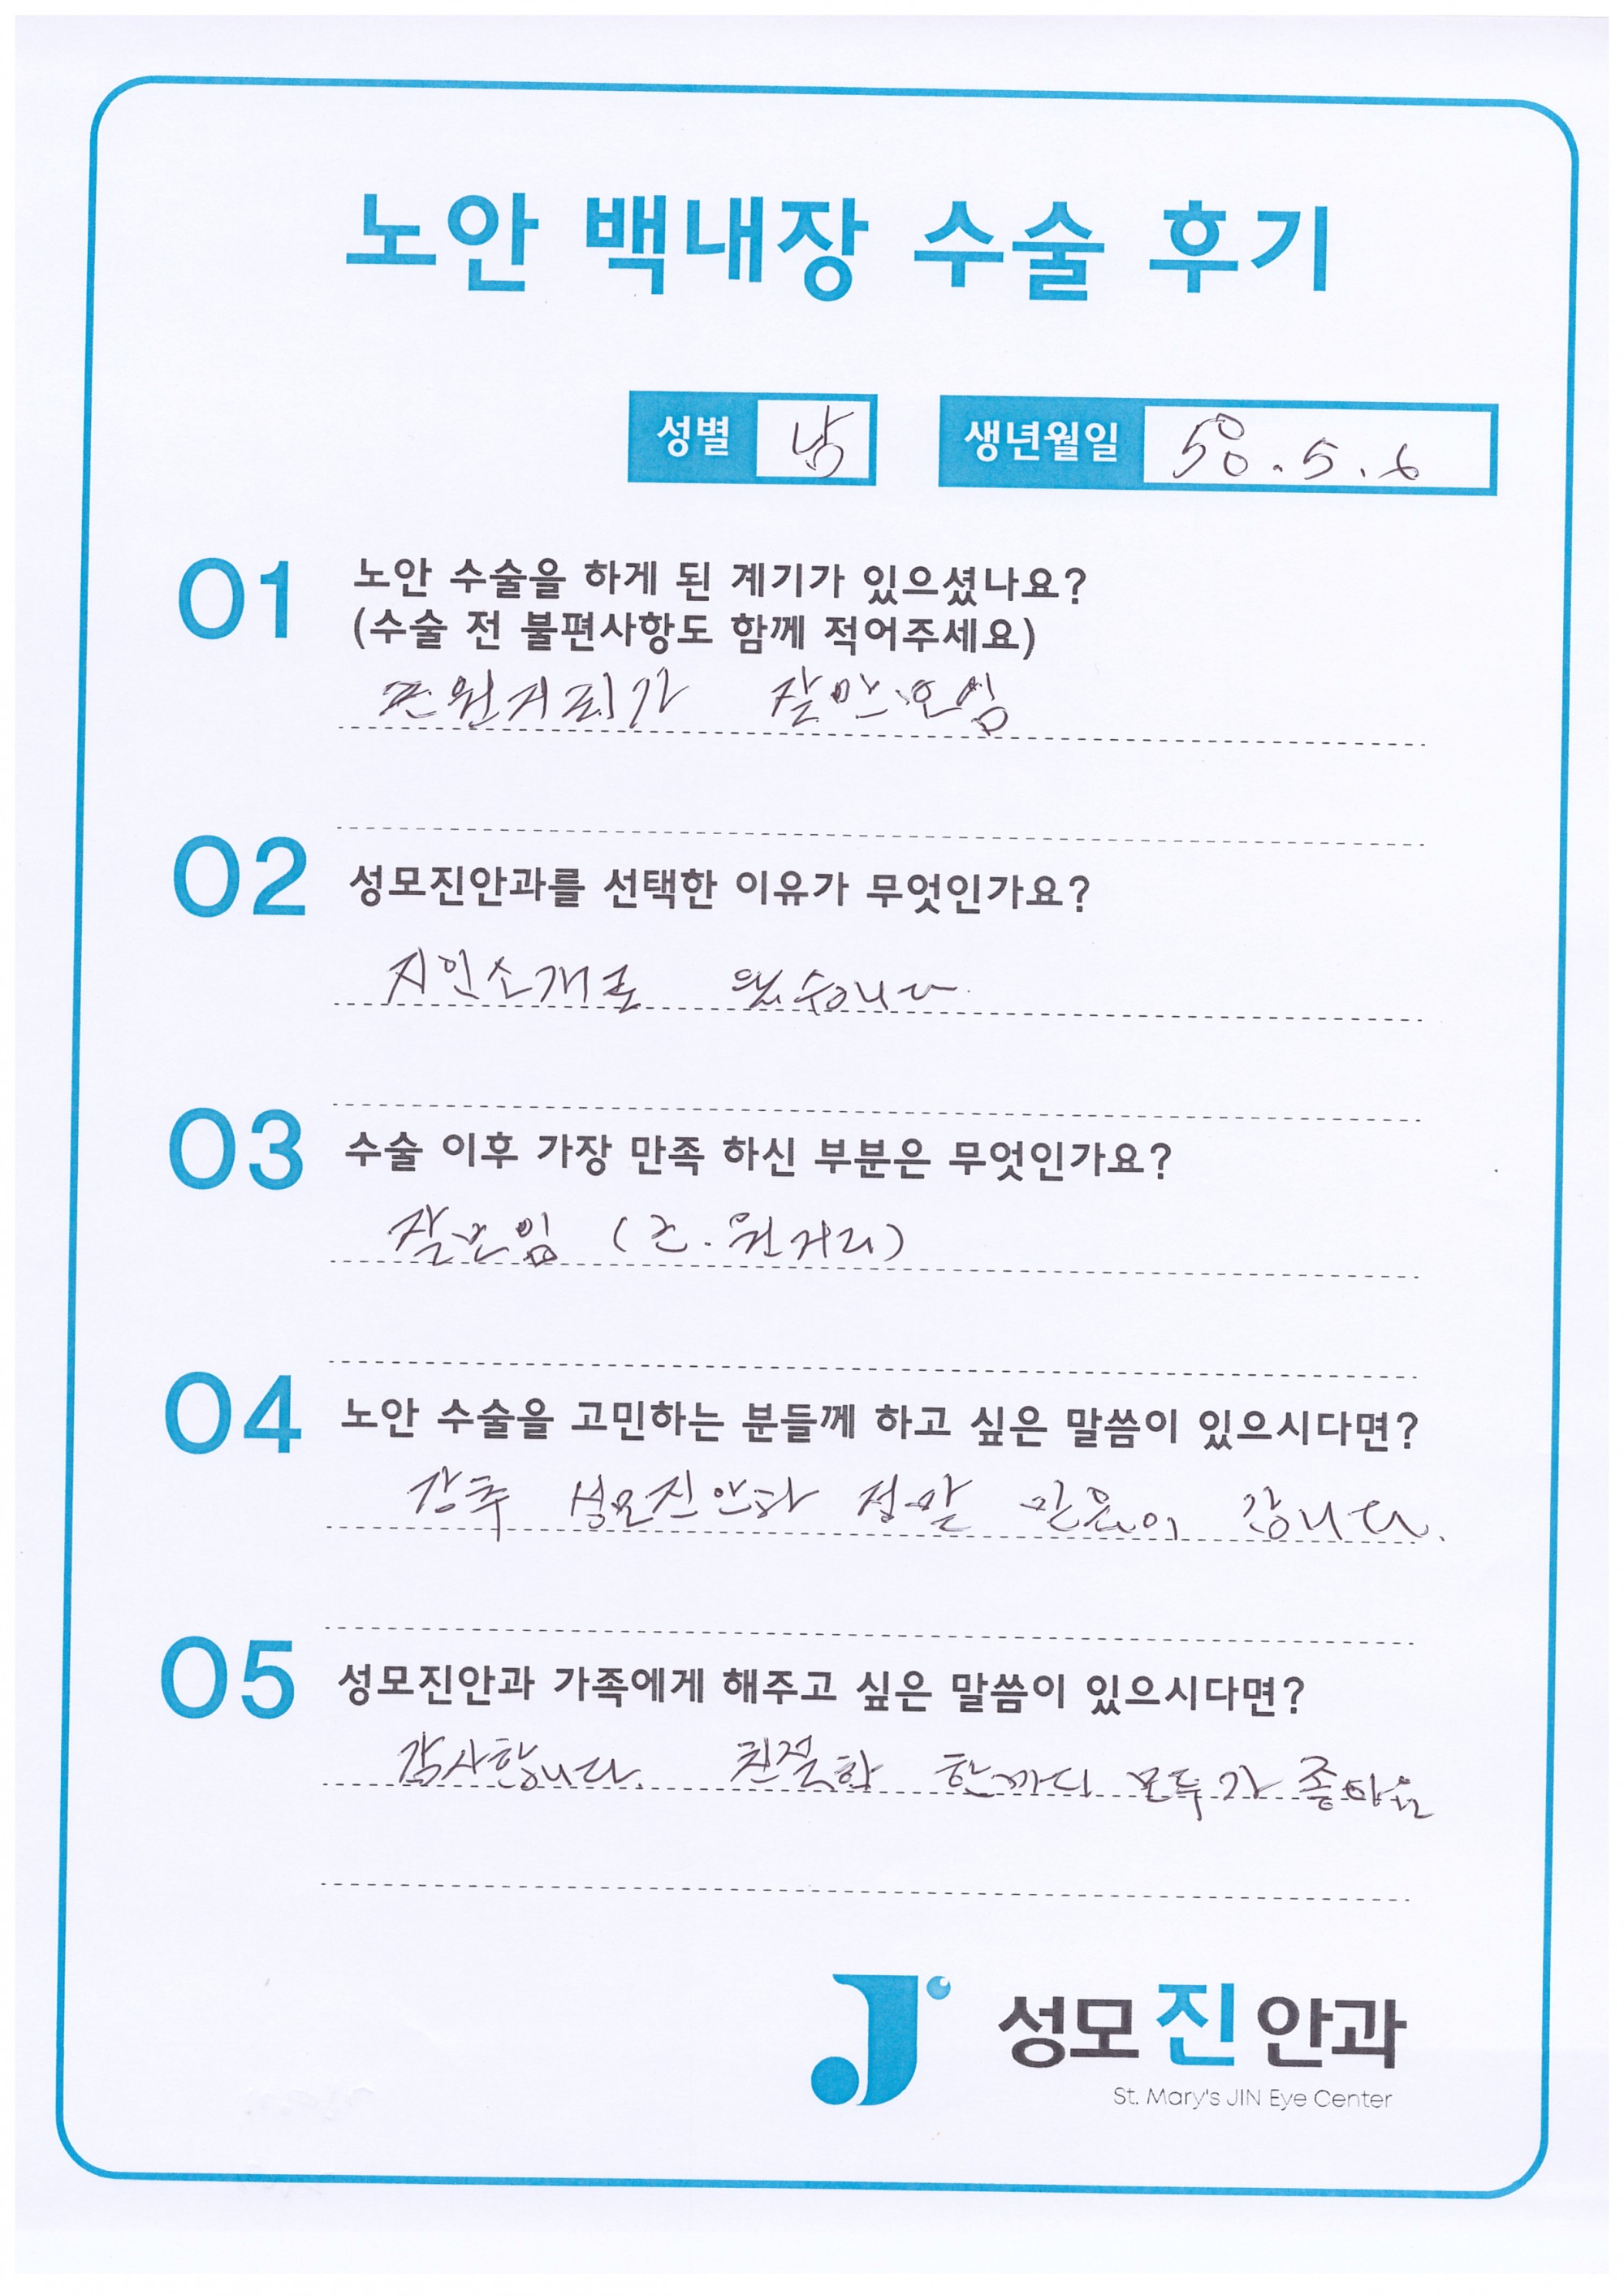 노안 백내장 수술 후기
성별 남 생년월일 58.5.6
01 노안 수술을 하게 된 계기가 있으셨나요?
(수술 전 불편사항도 함께 적어주세요)
근원거리가 잘안보임
02 성모진안과를 선택한 이유가 무엇인가요?
지인소개로 왔습니다
03 수술 이후 가장 만족 하신 부분은 무엇인가요?
잘보임 (근.원거리)
04 노안 수술을 고민하는 분들께 하고 싶은 말씀이 있으시다면?
강추 성모진안과 정말 믿음이 갑니다.
05 성모진안과 가족에게 해주고 싶은 말씀이 있으시다면?
감사합니다. 친절한 한마디 모두가 좋아요
성모진안과
St. Mary's JIN Eye Center